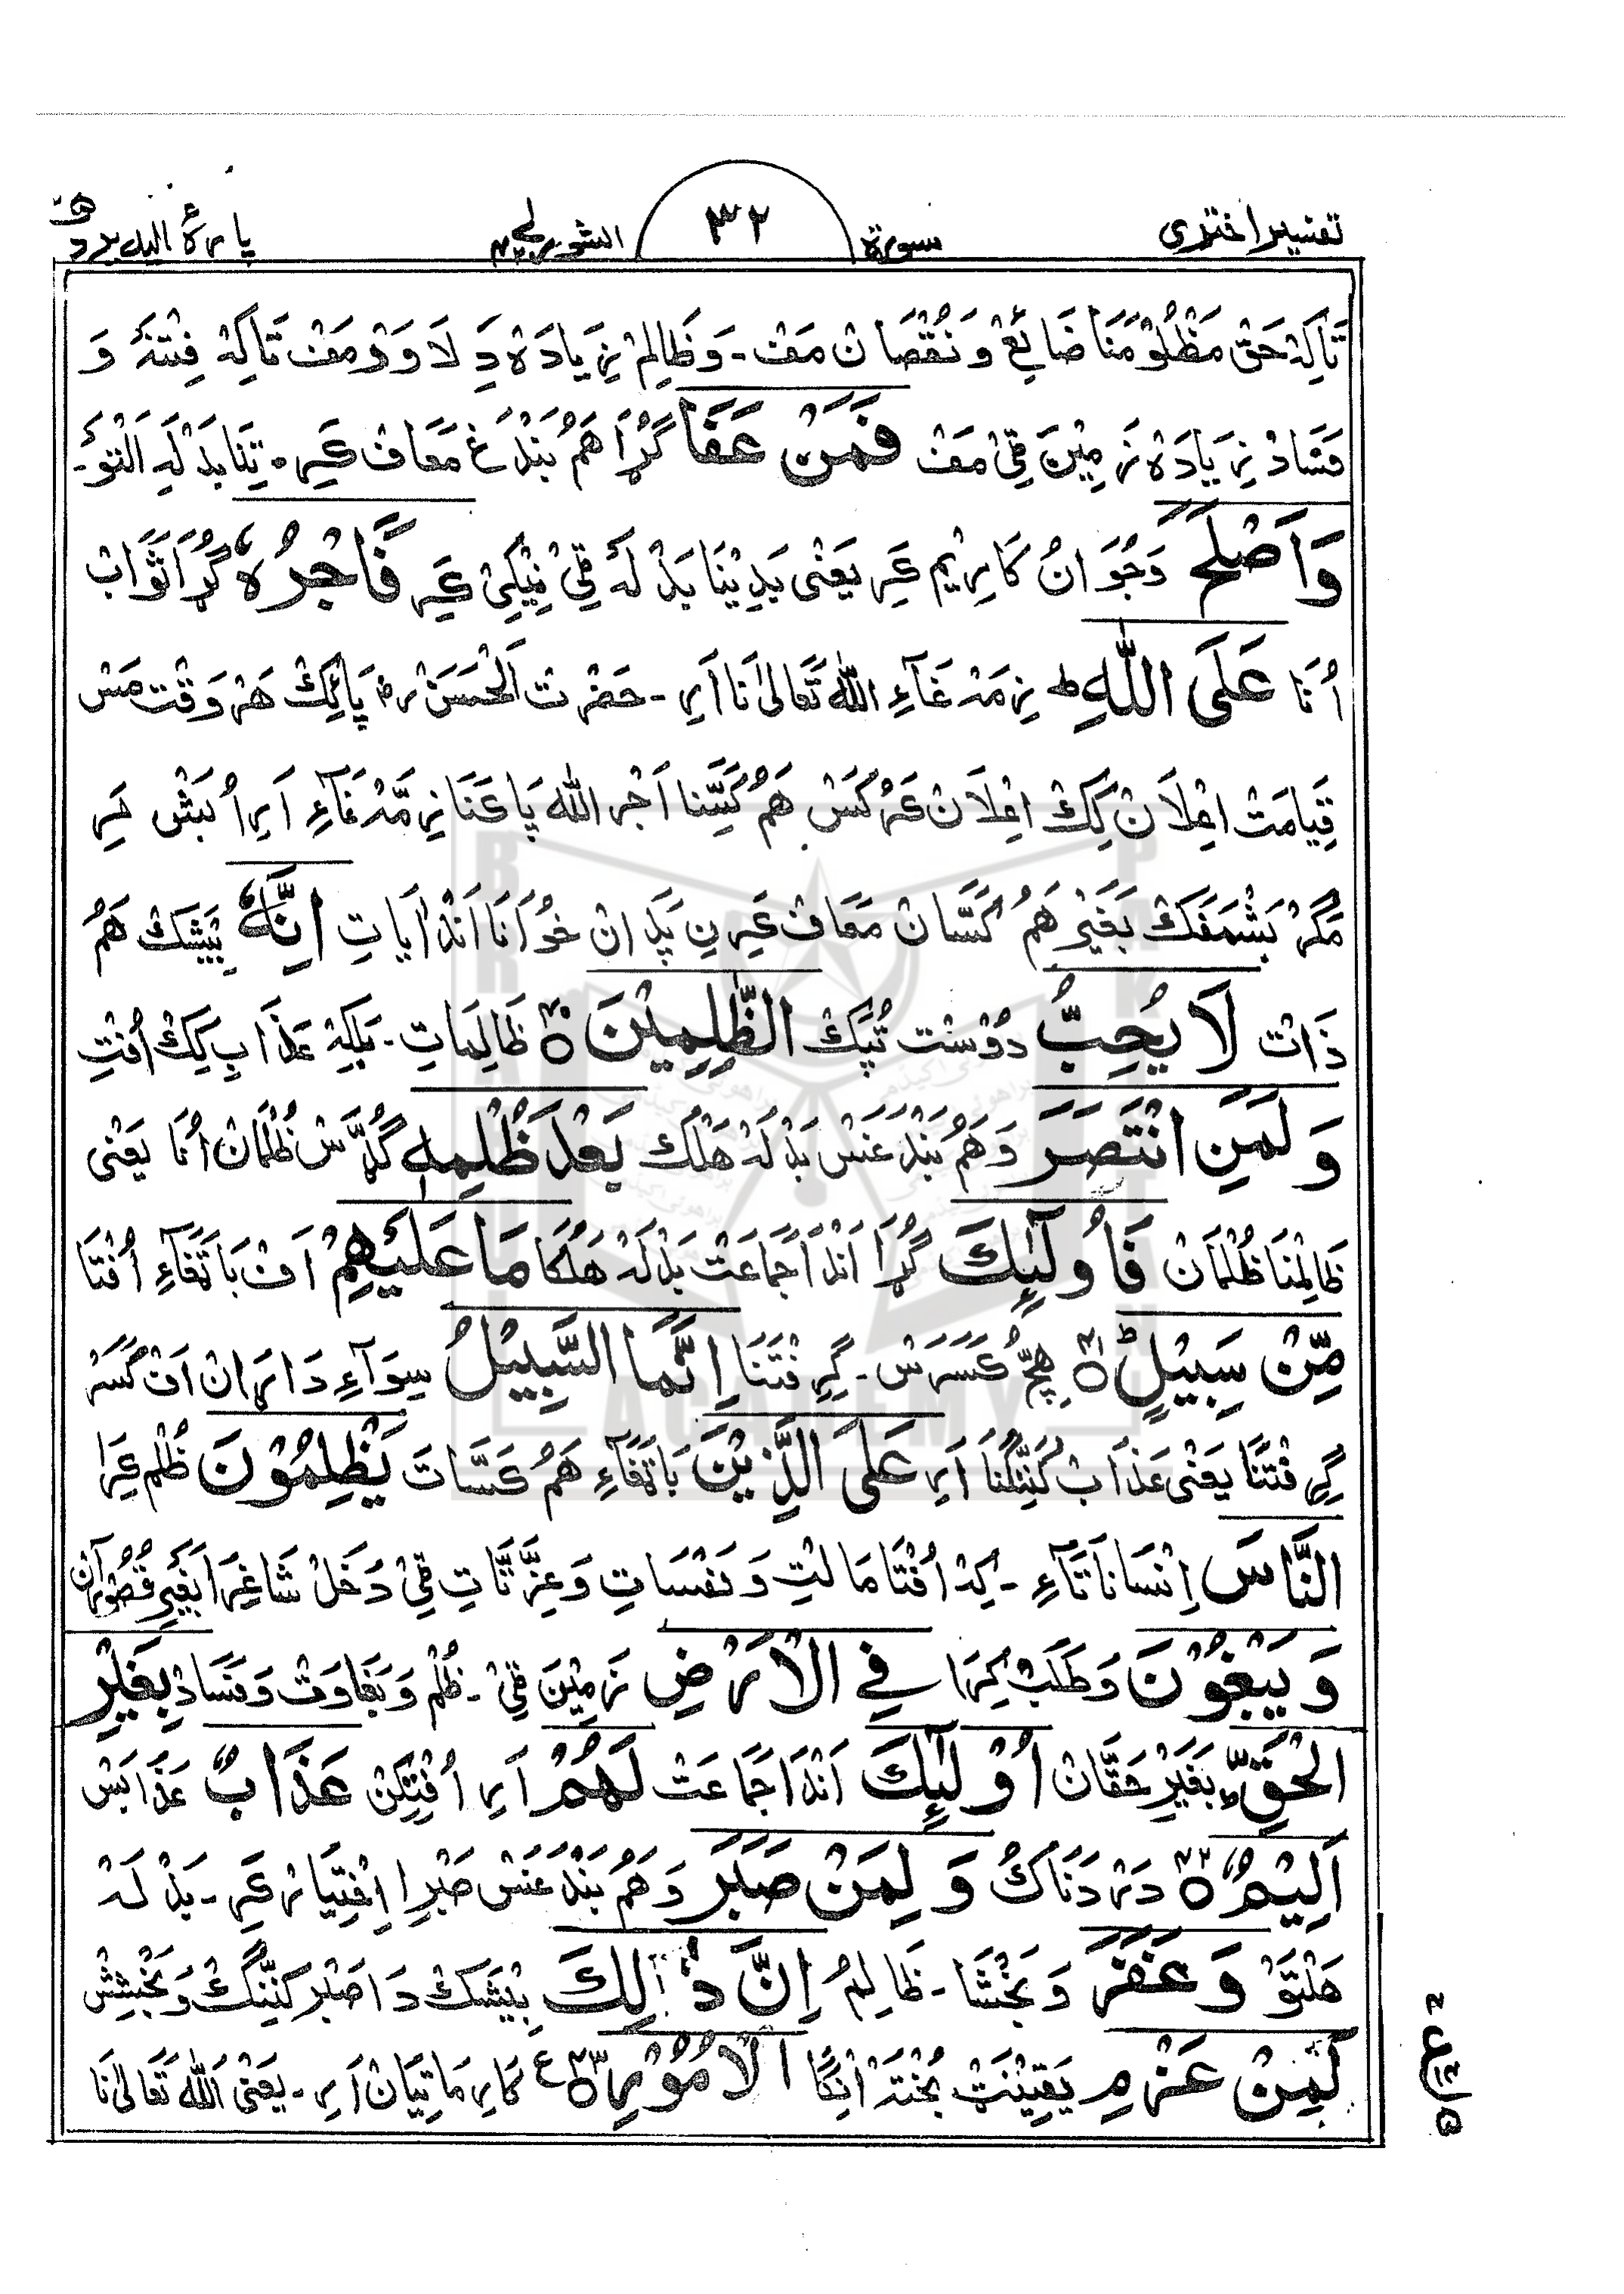 تفسیر اختری
سورة
٣٢
الشوریٰ
پارۂ الیہ یرد
تَاکِہ حَقْ مَظْلُوْمَنَا ضَائِعْ وَنُقْصَانْ مَفْ ۔ وَظَالِمْ زِیَادَہْ دِ لَاوَرْ مَفْ تَاکِہْ فِتْنَہْ وَ
فَسَادْ زِیَادَہْ زَمِیْنَ ٹِیْ مَفْ فَمَنْ عَفَا گُڑَا ھَمْ بَنْدَغْ مَعَافْ کَرِ ۔ تِنَا بَدْلَہِ اَلْتَوْ۔
وَاَصْلَحَ وَجُوَانُ کَارِیْم کَرِ یَعْنٰی بَدِیْنَا بَدْلَہْ ٹِیْ نِیْکِیْ کَرِ فَاَجْرُہٗ گُڑَا ثَوَابْ
اُنَا عَلَی اللّٰہِ ط زِمَّہ غَآءِ اللّٰہ تَعَالٰی نَا اَرِ ۔ حَضْرَتْ اَلْحَسَنْ رح پَائِکْ ھَرْ وَقْت مَسْ
قِیَامَتْ اِعْلَانْ کِکْ اِعْلَانْ کَرُکَسْ ھَمْ کَسِّنَا اَجْر اللّٰہ پَاکَنَا زِمَّہ غَآءِ اَرِ اُ بَشْ کَرِ
مَگَرْ بَشْمَفَکْ بَغَیْر ھَمْ کَسَّانْ مَعَافْ کَرِنِ پَدَانْ خُوَانَا اَنْدَا یَاتِ اِنَّہٗ بِیْشَکْ ھَمْ
ذَاتْ لَا یُحِبُّ دُوْسْت تَپَکْ الظّٰلِمِیْنَ ٥ ظَالِمَاتِ ۔ بَلْکِہْ عَذَابِ کِکْ اُفْتِ
وَلَمَنِ انْتَصَرَ وَھَمْ بَنْدَغَسْ بَدْلَہْ ھَلْکْ بَعْدَ ظُلْمِہٖ گُڈَّسْ ظُلْمَانْ اُنَا یَعْنٰی
ظَالِمْنَا ظُلْمَانْ فَاُولٰٓئِکَ گُڑَا اَنْدَا جَمَاعَتْ بَدْلَہْ ھَلْکَا مَا عَلَیْھِمْ اَفْ بَاتَغَآءِ اُفْتَا
مِّنْ سَبِیْلٍ ط ٥ ھِچْ کَسَّرَسْ ۔ گِرِفْتَنَا اِنَّمَا السَّبِیْلُ سِوَآءِ دَارَانْ اَفْ کَسَّرْ
گِرِفْتَنَا یَعْنٰی عَذَابْ کَنِنْگْنَا اَرِ عَلَی الَّذِیْنَ بَاتَغَآءِ ھَمْ کَسَّاتَ یَظْلِمُوْنَ ظُلْم کَرَا
النَّاسَ اِنْسَانَاتَآءِ ۔ کِہْ اُفْتَا مَالِتْ وَنَفْسَاتِ وَعِزَّتَّاتِ ٹِیْ دَخَلْ شَاغِرَا بَغَیْرِ قُصُوْرَانْ
وَیَبْغُوْنَ وَطَلَبْ کِرَا فِی الْاَرْضِ زَمِیْنَ ٹِیْ ۔ ظُلْم وَبَغَاوَتْ وَفَسَادْ بِغَیْرِ
الْحَقِّ بَغَیْرِ حَقَّانْ اُوْلٰٓئِکَ اَنْدَا جَمَاعَتْ لَھُمْ اَرِ اُفْتِکِنْ عَذَابٌ عَذَابَسْ
اَلِیْمٌ ٥ دَرْدَنَاکْ وَلَمَنْ صَبَرَ وَھَمْ بَنْدَغَسْ صَبْرِ اِخْتِیَارْ کَرِ ۔ بَدْلَہْ
ھَلْتَوْ وَغَفَرَ وَبَخْشَا ۔ ظَالِمُ اِنَّ ذٰلِکَ بِیْشَکْ دَا صَبْر کَنِنْگْ وَبَخْشِشْ
لَمِنْ عَزْمِ یَقِیْنَتْ پُخْتَہْ اَنْگَا الْاُمُوْرِ ٥ ع کَارِمَاتِیَانْ اَرِ ۔ یَعْنٰی اللّٰہ تَعَالٰی نَا